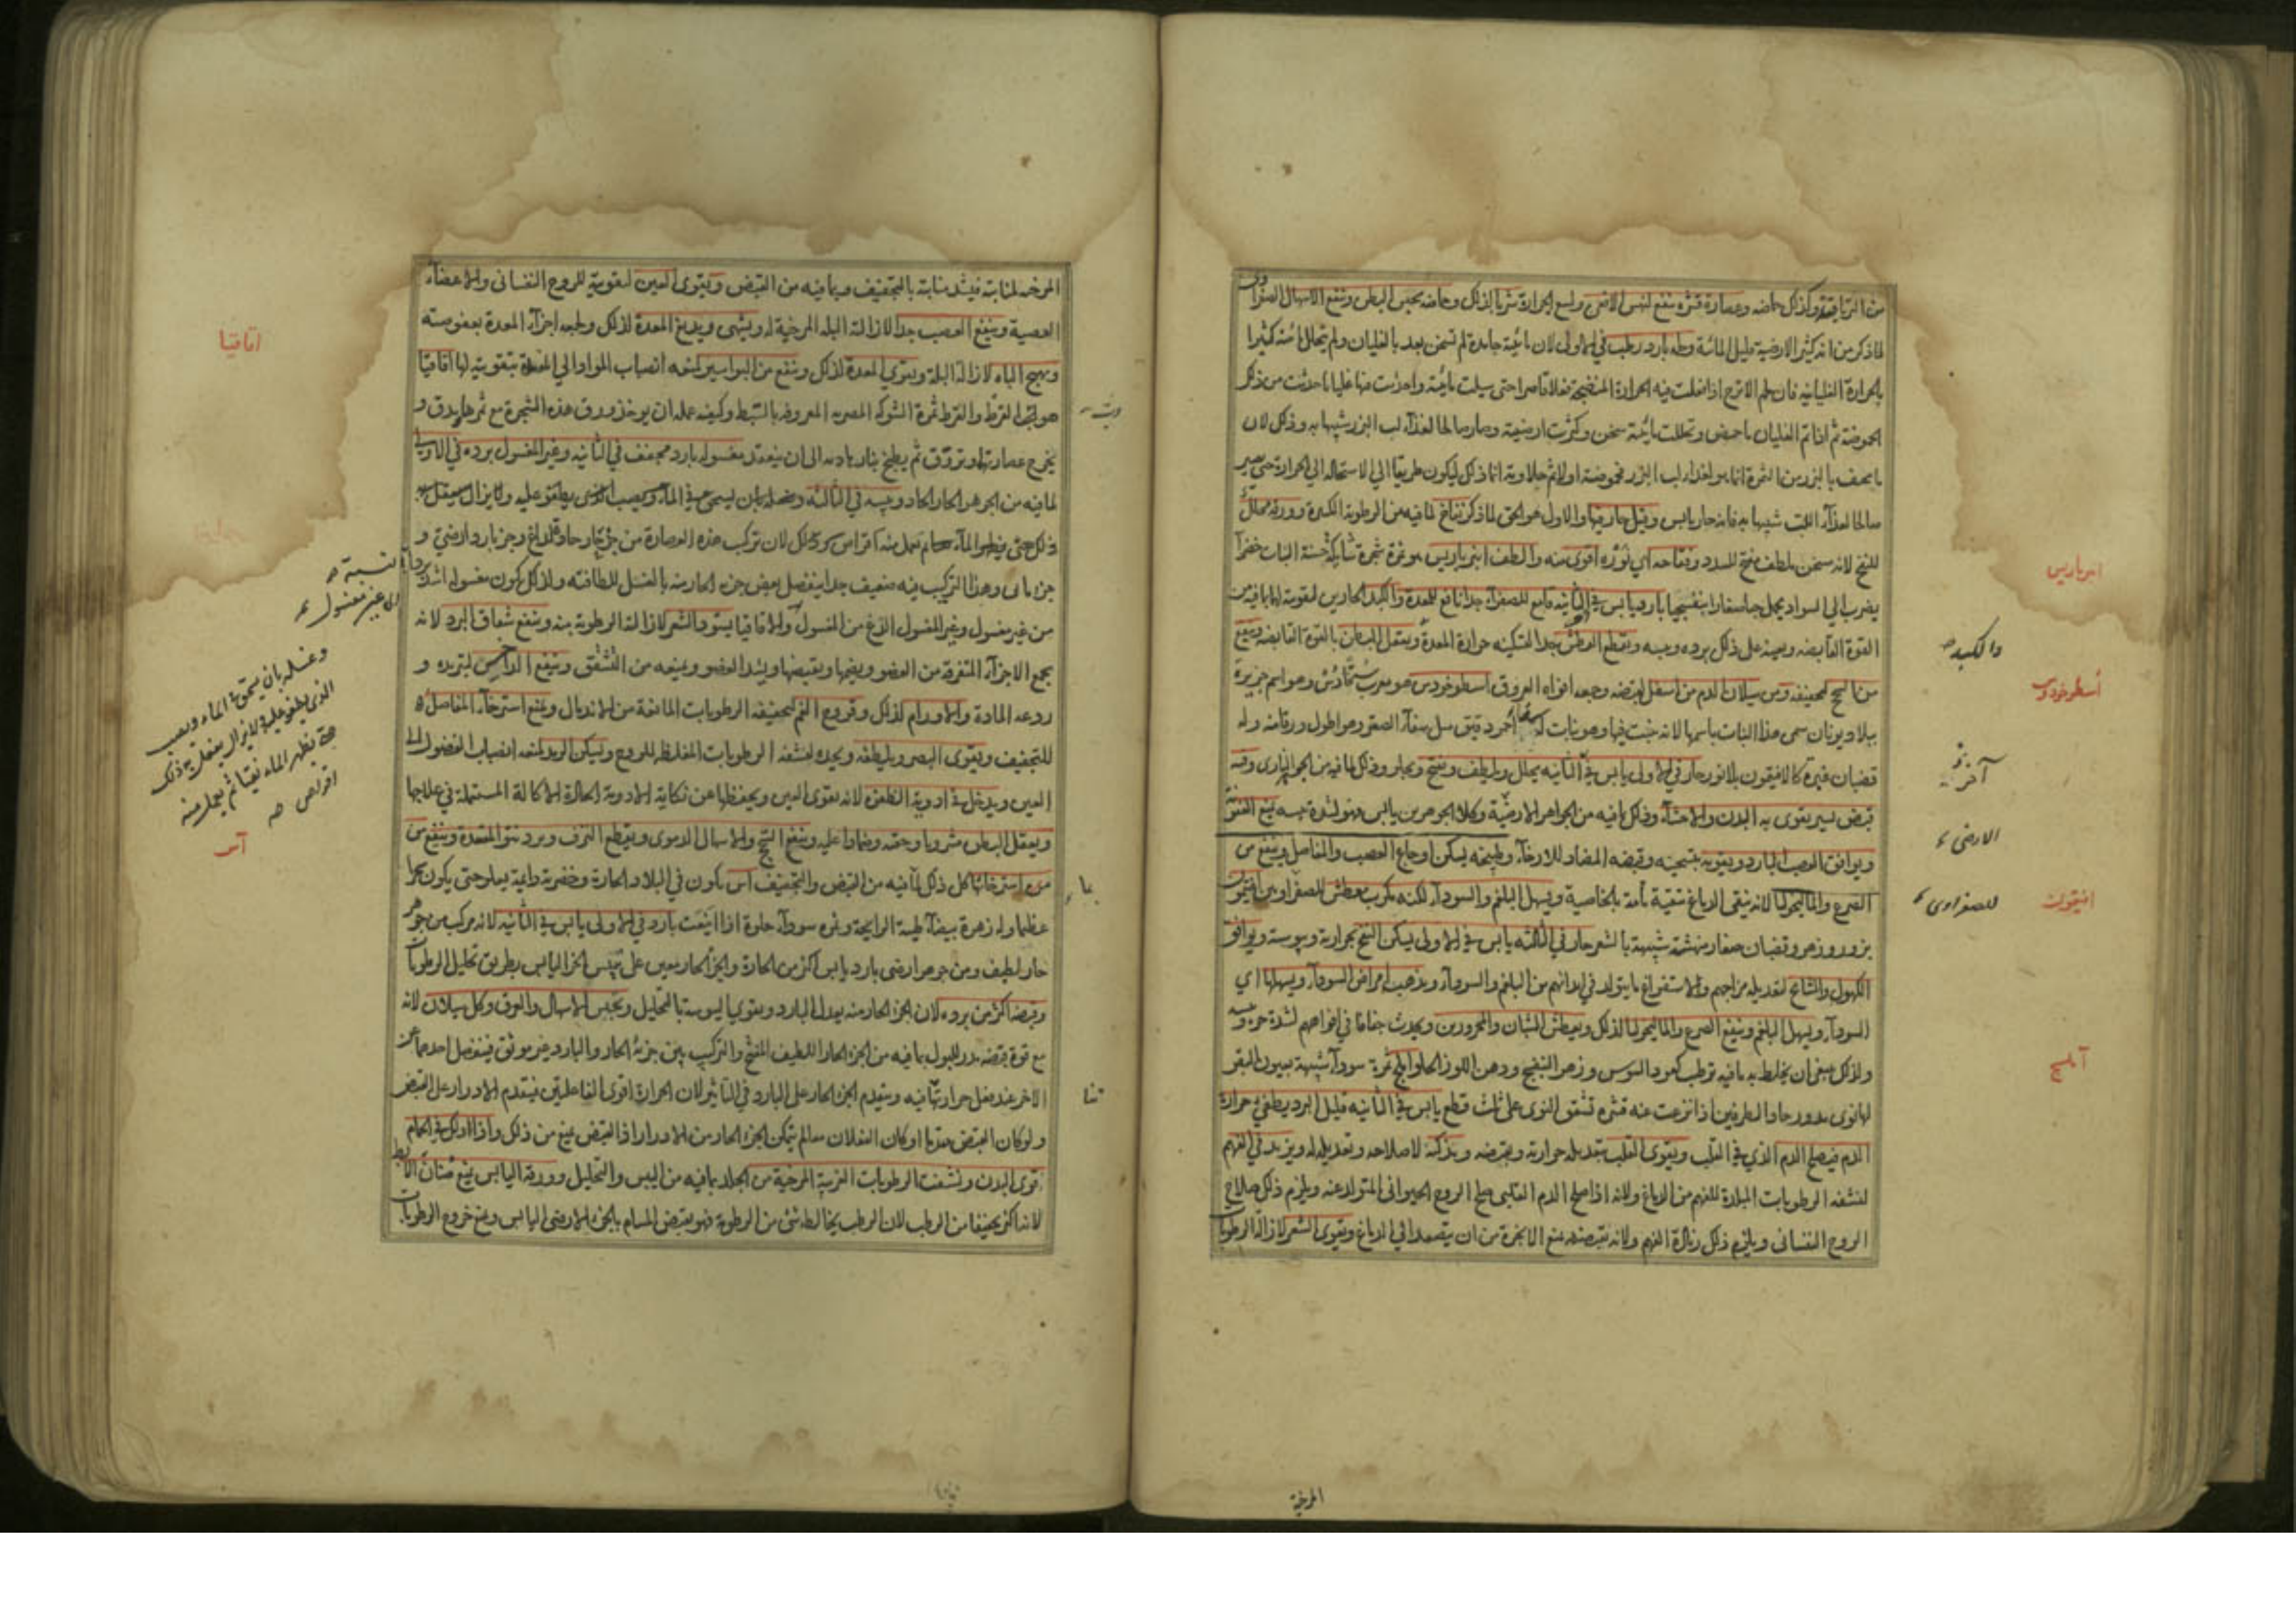 من الترياقية وكذلك حماضه وعصارة قشره ينفع لنهس الافاعي ولسع الجرارة شربا لذلك وحماضه يحبس البطن وينفع الاسهال الصفراوى
لما ذكر من انه كثير الارضية قليل المائية ولحمه بارد رطب في الاولى لان مائيته جامدة لم تسخن بعد بالغليان ولم يتحلل المائية كثيرا
بالحرارة الغليانية فان لحم الاترج اذا فعلت فيه الحرارة المنضجة فعلا قاصرا حتى سيلت مائيته واحدثت فيها غليانا حدثت من ذلك
الحموضة ثم اذا تم الغليان ما حمض وتحللت مائيته سخن وكثرت ارضيته وصار صالحا لغذاء لب البزر شبيها به وذلك لان
ما يحف بالبزر من الثمرة انما هو لغذاء لب البزر فحموضته اولا ثم حلاوته انما ذلك ليكون طريقا الى الاستحالة الى الحرارة حتى يصير
صالحا لغذاء اللب شبيها به فانه حار يابس وقيل حار فيها والاول هو الحق لما ذكر نفاخ لما فيه من الرطوبة الكثيرة وورقه محلل
للنفخ لانه مسخن ملطف مفتح للسدد وفقاحه اي نوره اقوى منه والطف امبرباريس هو ثمرة شجرة شائكة خشنة النبات خضراء
يضرب الى السواد يحمل حبا صغارا بنفسجيا بارد يابس في الثانية قامع للصفراء جدا نافع للمعدة والكبد الحارين لتقويته لها بما فيه من
القوة القابضة ويعينه على ذلك برده ويبسه ويقطع العطش جدا لتسكينه حرارة المعدة ويعقل البطن بالقوة القابضة وينفع
من السحج لتجفيفه ومن سيلان الدم من اسفل لقبضه وجمعه افواه العروق اسطوخودس هو معرب ستخادس وهو اسم جزيرة
ببلاد يونان سمى هذا النبات باسمها لانه ينبت فيها وهو نبات له سفا احمر دقيق مثل سفا الصعتر وهو اطول ورقا منه وله
قضبان غبرة كالافيثمون بلا نور حار في الاولى يابس في الثانية يحلل ويلطف ويفتح ويجلو وذلك لما فيه من الجزء النارى وفيه
قبض يسير يقوى به البدن والاحشاء وذلك لما فيه من الجواهر الارضية وكلا الجوهرين يابس فهو لشدة يبسه يمنع العفونة
ويوافق العصب البارد ويقويه بتسخينه وقبضه المضاد للارخاء وطبيخه يسكن اوجاع العصب والمفاصل وينفع من
الصرع والماليخوليا لانه ينقى الدماغ تنقية تامة بالخاصية ويسهل البلغم والسوداء لكنه مكرب معطش للصفراويين افيثمون
بزور وزهر وقضبان صغار متهشمة شبيهة بالشعر حار في الثالثة يابس في الاولى يسكن النفخ بحرارته ويبوسته ويوافق
الكهول والمشايخ لتعديله مزاجهم والاستفراغ ما يتولد في ابدانهم من البلغم والسوداء ويذهب امراض السوداء ويسهلها اي
السوداء ويسهل البلغم وينفع الصرع والماليخوليا لذلك ويعطش الشبان والمحرورين ويحدث جفافا في افواههم لشدة حره ويبسه
ولذلك ينبغى ان يخلط به ما فيه ترطيب كعود السوس وزهر البنفسج ودهن اللوز الحلو املج ثمرة سوداء شبيهة بعيون البقر
لها نوى مدور حاد الطرفين اذا نزعت عنه قشره تشقق النوى على ثلث قطع يابس في الثانية قليل البرد يطفئ حرارة
الدم فيصلح الدم الذي في القلب ويقوى القلب بتعديله حرارته وبقبضه ويذكيه لاصلاحه وتعديله له ويزيد في الفهم
لنشفه الرطوبات المبلدة للفهم من الدماغ ولانه اذا صلح الدم القلبي صلح الروح الحيوانى المتولد عنه ويلزم ذلك صلاح
الروح النفسانى ويلزم ذلك زيادة الفهم ولانه بقبضه يمنع الابخرة من ان يتصعد الى الدماغ ويقوى الشعر لازالة الرطوبات
امبرباريس
والكبد صح
اسطوخودوس
آخر
الارضى
للصفراوى
افيثمون
آملج
المرخية
المرخية لمنابته فيشد منابته بالتجفيف وبما فيه من القبض ويقوى العين لتقويته للروح النفسانى والاعضاء
العصبية وينفع العصب جدا لازالته البلة المرخية له ويشهى ويدبغ المعدة لذلك ولجمعه اجزاء المعدة بعفوصته
ويهيج الباه لازالة البلة ويقوى المعدة لذلك وينفع من البواسير لمنعه انصباب المواد الى المقعدة بتقويته لها اقاقيا
هو رب القرظ والقرظ ثمرة الشوكة المصرية المعروفة بالسنط وكيفية عمله ان يوخذ ورق هذه الشجرة مع ثمرها يدق و
يخرج عصارتها وتروق ثم يطبخ بنار هادية الى ان ينعقد مغسوله بارد مجفف في الثانية وغير المغسول برده في الاولى
لما فيه من الجوهر الحار الحاد ويبسه في الثالثة وغسله بان يسحق في الماء ويصب الذى يطفو عليه ولا يزال يفعل به
ذلك حتى يظهر الماء نقيا ثم يعمل منه اقراص وذلك لان تركب هذه العصارة من جزء حار حاد لذاع وجزء بارد ارضى و
جزء مائى وهذا التركيب فيه ضعيف جدا ينفصل بعض جزءه الحار منه بالغسل للطافته ولذلك يكون مغسوله اشد بردا
من غير مغسول وغير المغسول الذع من المغسول والاقاقيا يسود الشعر لازالة الرطوبة منه وينفع شقاق البرد لانه
يجمع الاجزاء المتفرقة من العضو ويضمها ويقبضها ويشد العضو ويمنعه من التشقق وينفع الداحس لتبريده و
ردعه المادة والاورام لذلك وقروح الفم لتجفيفه الرطوبات المانعة من الاندمال ويمنع استرخاء المفاصل
للتجفيف ويقوى البصر ويلطفه ويحده لنشفه الرطوبات المغلظة للروح ويسكن الرمد لمنعه انصباب الفضول الى
العين ويدخل في ادوية الظفرة لانه يقوى العين ويحفظها عن نكاية الادوية الحادة الاكالة المستعملة في علاجها
ويعقل البطن مشروبا وحقنة وضمادا عليه وينفع السحج والاسهال الدموى ويقطع النزف ويرد نتو المقعدة وينفع من
استرخائها كل ذلك لما فيه من القبض والتجفيف آس يكون في البلاد الحارة وخضرته دائمة يعلو حتى يكون شجرا
عظيما وله زهرة بيضاء طيبة الرايحة وثمرة سوداء حلوة اذا اينعت بارد في الاولى يابس في الثانية لانه مركب من جوهر
حار لطيف ومن جوهر ارضى بارد يابس اكثر من الحارة والجزء الحار يعين على تيبيس الجزء اليابس بطريق تحليل الرطوبات
وقبضه اكثر من برده لان الجزء الحار منه يعدل البارد ويقوى اليبوسة بالتحليل ويحبس الاسهال والعرق وكل سيلان لانه
مع قوة قبضه مدر للبول بما فيه من الجزء الحار اللطيف المفتح والتركيب بين جزئه الحار والبارد غير موثق فينفصل احدهما عن
الاخر عند فعل حرارتنا فيه ويتقدم الجزء الحار على البارد في التاثير لان الحرارة اقوى الفاعلتين فيتقدم الادرار على القبض
ولو كان القبض متقدما او كان الفعلان معا لم يتمكن الجزء الحار من الادرار اذ القبض يمنع من ذلك واذا دلك به في الحمام
قوى البدن ونشفت الرطوبات الغريبة المرخية من الجلد بما فيه من اليبس والتحليل وورقه اليابس يمنع صنان الابط
لانه اكثر تجفيفا من الرطب لان الرطب يخالطه شئ من الرطوبة فهو يقبض المسام بالجزء الارضى اليابس ويمنع خروج الرطوبات
اقاقيا
بردا نسبته
الى غير مغسول
وغسله بان يسحق في الماء ويصب
الذى يطفو عليه ولا يزال يفعل به ذلك
حتى يظهر الماء نقيا ثم يعمل منه
اقراص صح
آس